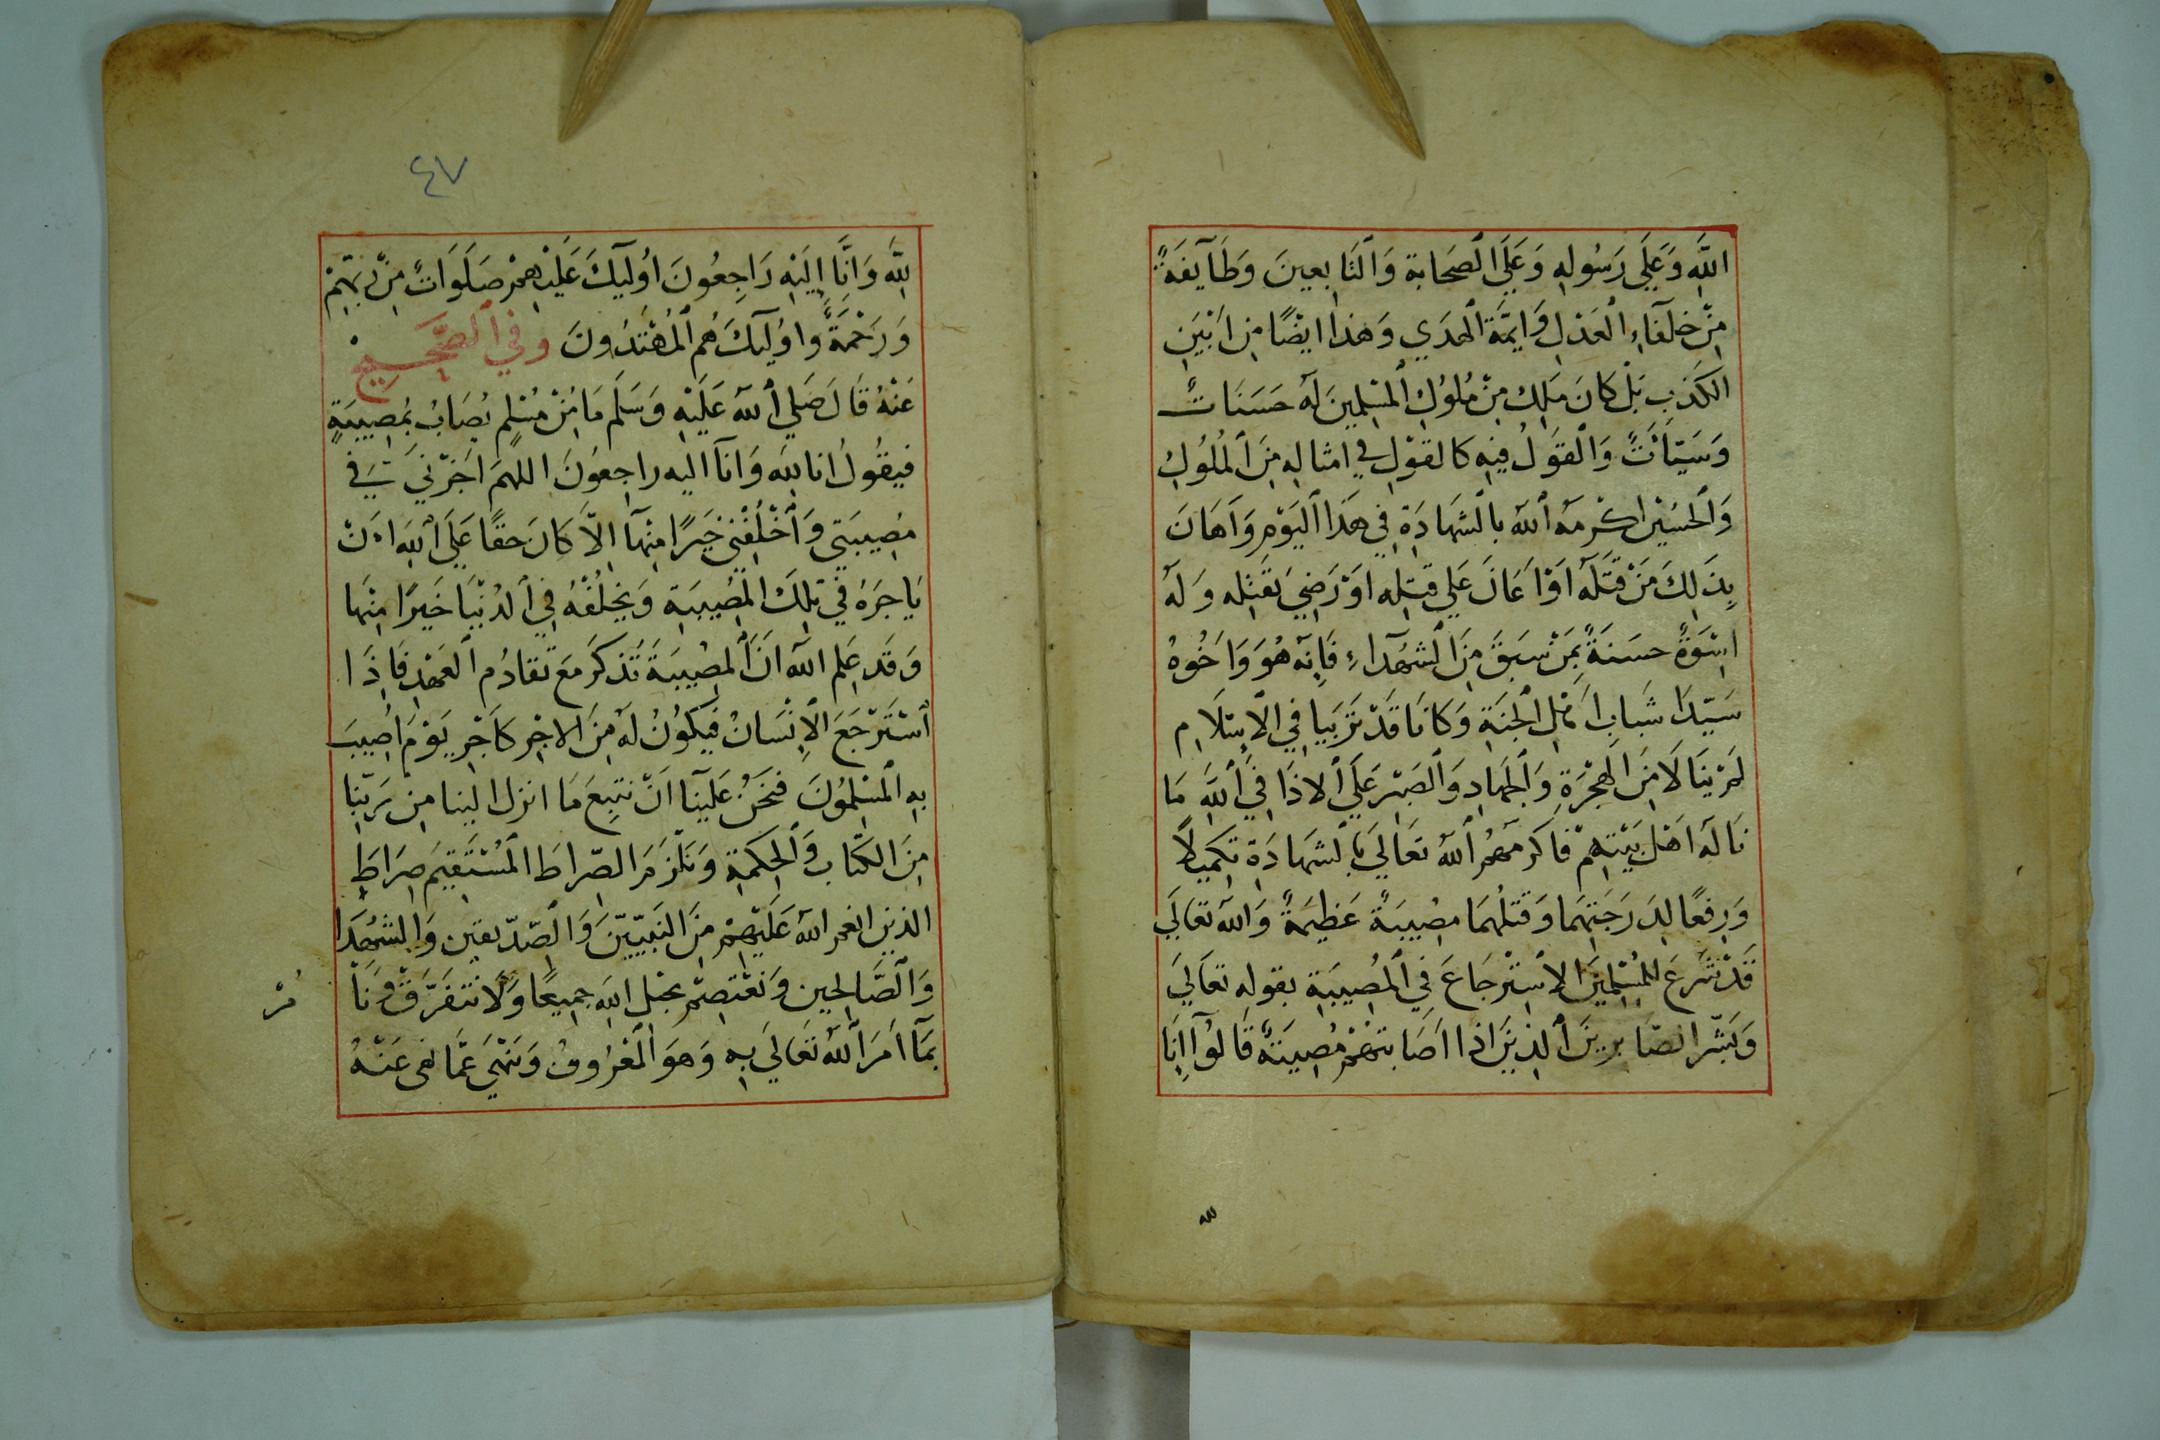 اللَّهِ وَعَلَى رَسُولِهِ وَعَلَى الصَحَابة وَالتَابِعينَ وَطَآيفَةً
مِنْ خلَفَآءِ الْعَدْلِ وَايمَّة الهدَي وَهَذا ايضًا مِن اَبْيَنِ
الكَذِبِ بَلْ كَانَ مَلِك مِنْ مُلوُكِ الْمسْلمِينَ لَهُ حَسَنَات
وَسَيّآتٌ وَالْقَولُ فيهِ كالقوْلِ في امثالِهِ مِنَ الْمُلوُكِ
وَالحُسَيْن اكرَمَهُ اللهُ بالشهَادَةِ فِي هَذَا الْيَوْمِ وَاَهَانَ
بِذَلِكَ مَنْ قَتَلَهُ اَوْ اَعَانَ عَلي قتلِه اَوْ رَضِيَ بقَتْلِه وَلَهُ
اسْوَةٌ حسَنَةٌ بمَنْ سَبَقَ مِنَ الشهَدَآءِ فَاِنّهُ هُوَ وَاَخُوهُ
سَيّدَا شَبابِ اَهْلِ الجَنَةِ وَكانَا قَدْ تَرَبيا فِي الاِسْلَامِ
لمْ يَنَالَا مِنَ الهِجْرَةِ وَالْجهَادِ وَالصَبْرِ عَلَي الاذَا فِي اللَّهِ مَا
نَالَهُ اَهْل بَيْتِهمْ فاَكرَمَهُم اللهُ تعَالَي بالشهَادَةِ تكميلًا
وَرفعًا لِدَرَجَتِهِما وَقتلُهُمَا مصِيبَةٌ عَظِيمَةٌ وَاللهُ تعَالَي
قَدْ شَرَعَ للمُسْلمِينَ الاِسْتِرْجَاعَ فِي المُصِيبَةِ بقوله تعَالَي
وَبَشّر الصّابرِينَ الذِينَ اذا اَصَابَتهُمْ مُصِيبَةٌ قَالوُآ اِنَا
٤٧
للَّهِ وَانَِّا اِلَيْهِ رَاجِعُونَ اوُلَيكَ عَلَيْهِمْ صَلَوَاتٌ مِنْ رَبّهِمْ
وَرَحْمَةٌ وَاوُلَيكَ هُم الْمُهْتدُونَ وفي الصَّحِيحِ
عَنْهُ قَالَ صَلي اللهُ عَلَيْهِ وَسَلَّم مَا مِنْ مُسْلمٍ يُصَابُ بمُصِيبَةٍ
فيقُولُ انا للهِ وَانآ اليه راجِعُونَ اللهمَ اَجرْني في
مصِيبَتي وَاَخْلُفْنِي خَيرًا مِنْهَآ اِلّا كَانَ حَقًا عَلَى اللهِ اَنْ
يَاجرَهُ فِي تِلكَ الْمصُيبَةِ وَيخلُفهُ فِي الدُنْيَا خَيْرًا مِنْها
وَقَد عَلِم اللهُ انَ المصِيبَةَ تُذكَر مَعَ تَقادُم العَهْدِ فَاِذَا
اسْتَرْجَعَ الاِنْسَانُ فيَكُونُ لَهُ مِنَ الاجْرِ كاَجْرِ يَوْمَ اُصِيبَ
بِهِ المسْلِمُونَ فنحَنُ عَلَيْنَآ اَنْ نَتبِعَ مَا انزل الينا مِن رَبّنا
مِنَ الكتاب وَالحِكمَةِ وَنَلْزَمَ الصّراطَ الْمُسْتَقِيمَ صِرَاطِ
الذين انعم اللهُ عَلَيْهِمْ مِنَ النَبيّيَنَ وَالصّدّيقين وَالشهَدا
وَالصَّالِحين وَنعْتصِمُ بحبل اللهِ جميعًا وَلَا نتَفَرّقُ وَنَا
مُرْ
بمَآ اَمَرَ اللهُ تعَالَي بِهِ وَهوَ الْمَعْرُوفُ وَننْهَي عَمّا نهى عَنْهُ